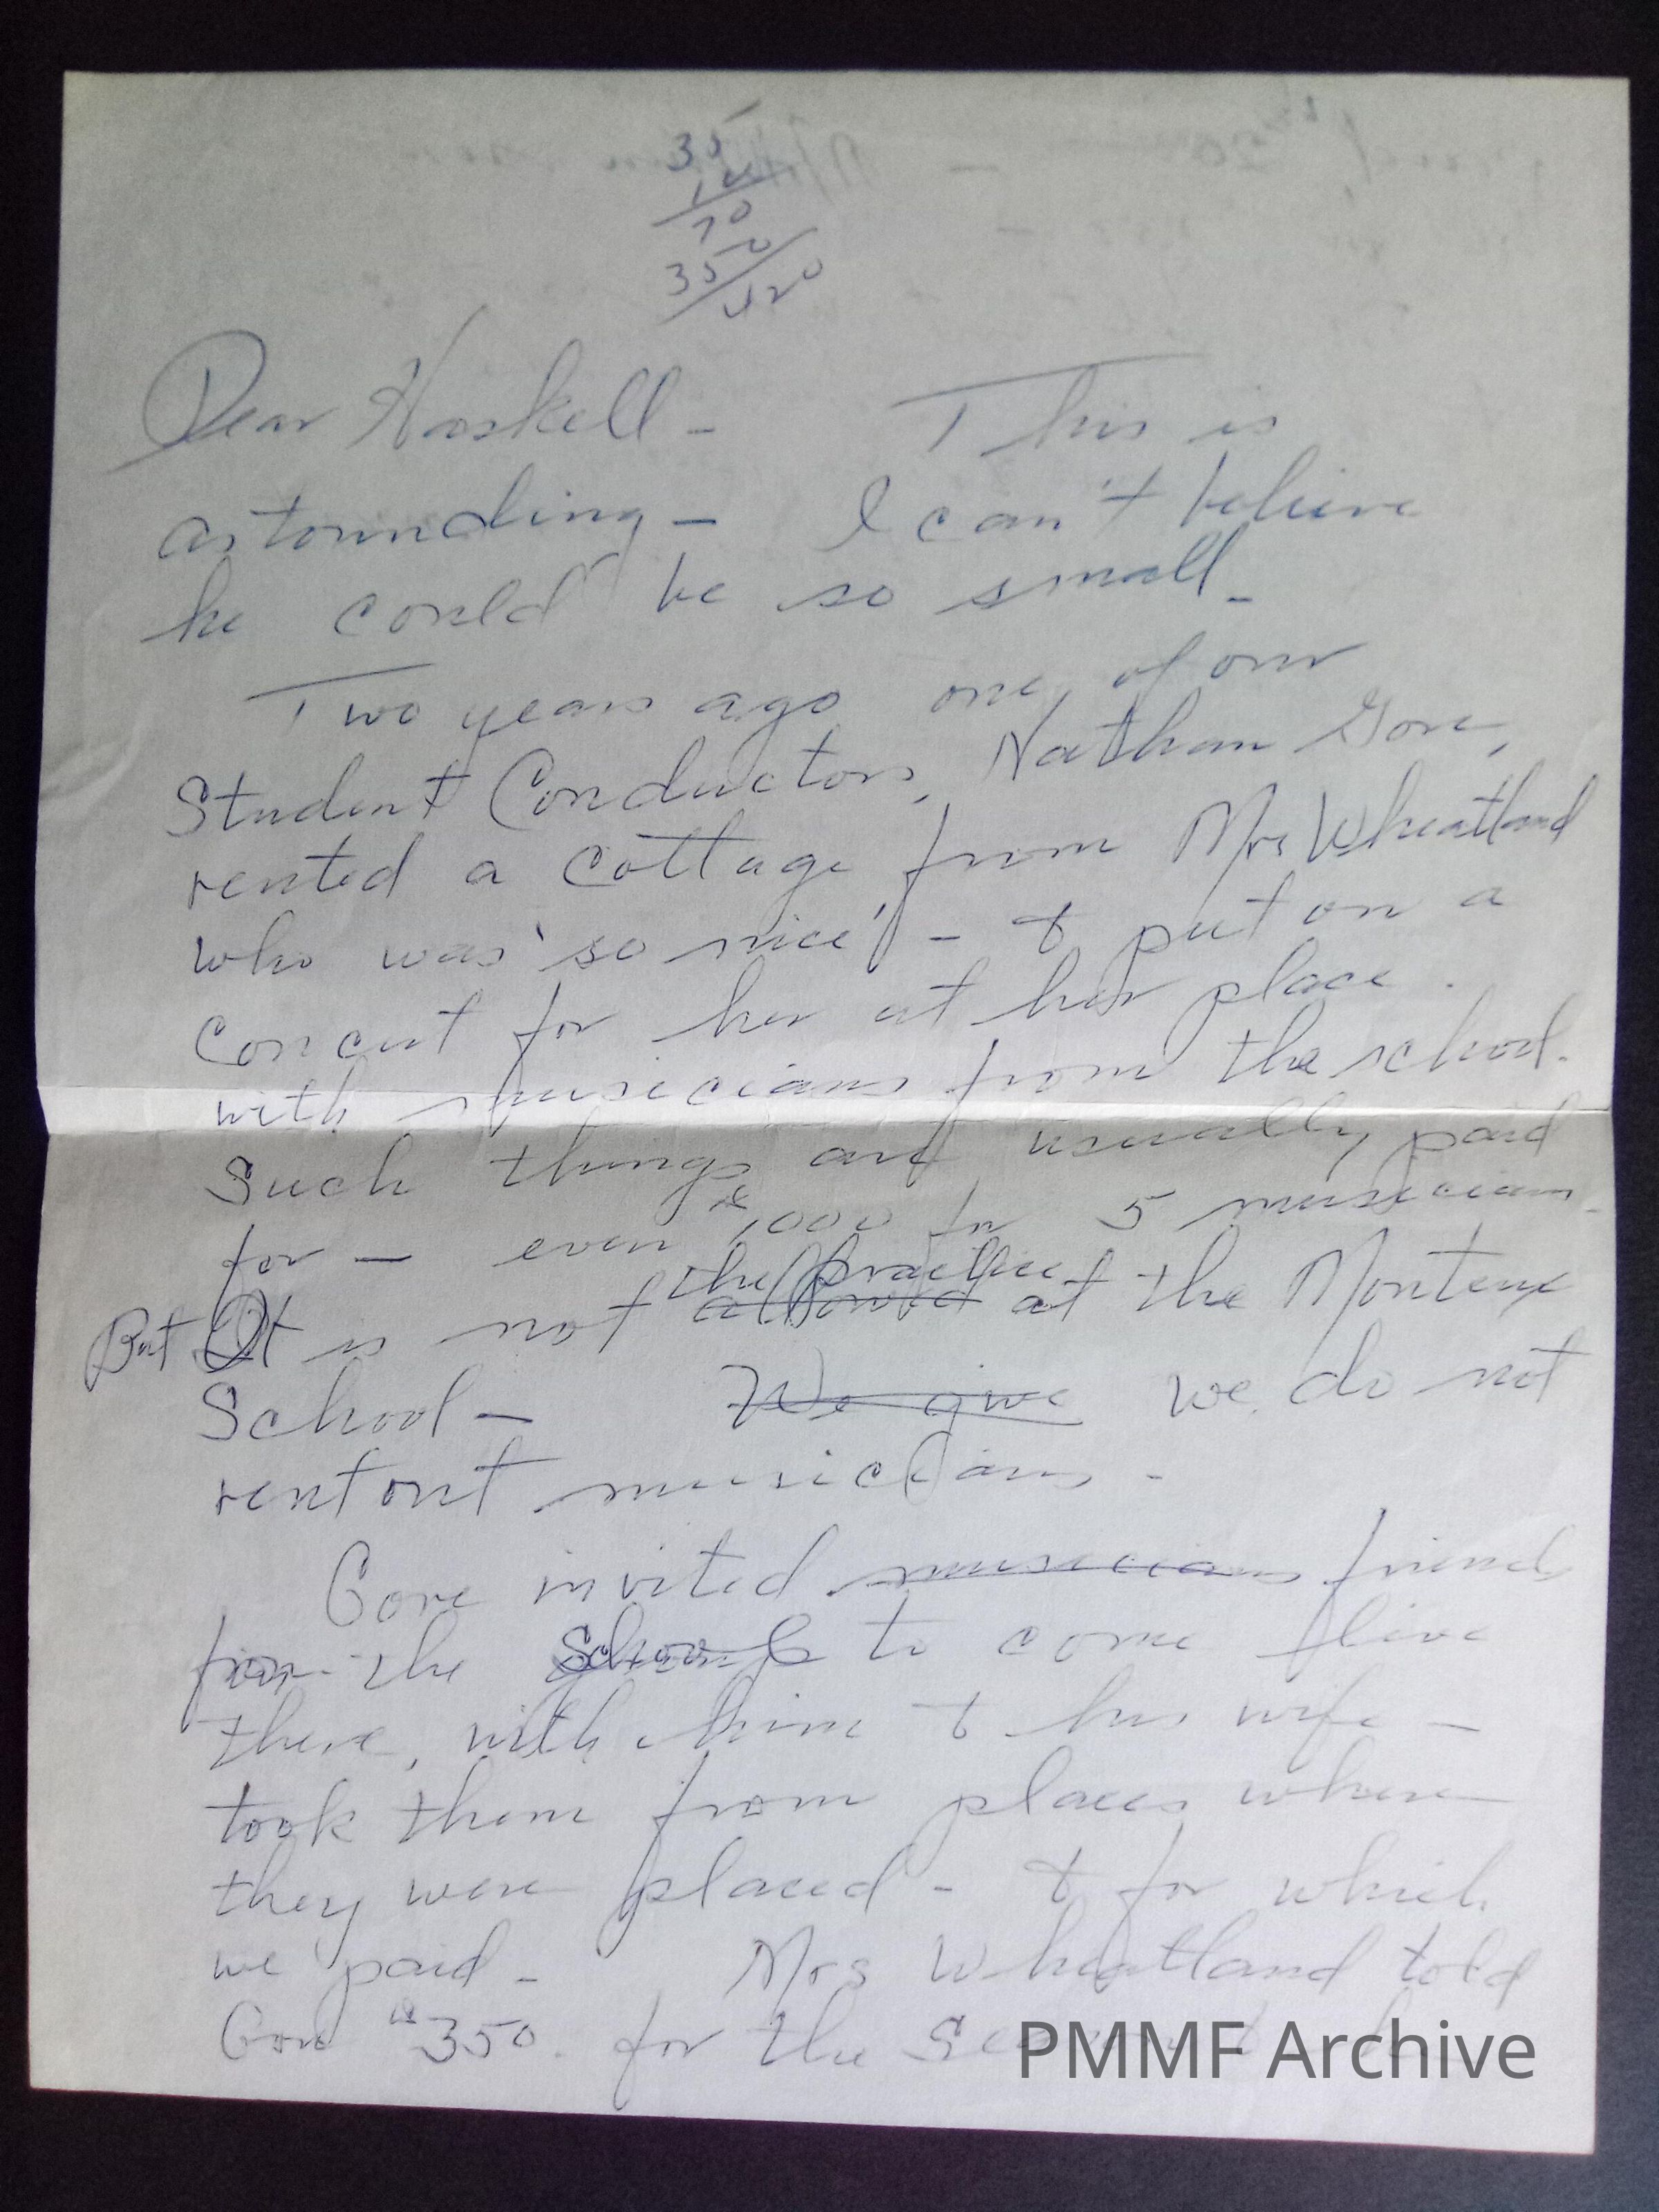 35
12
70
350
420
Dear Haskell - This is
astounding - I can't believe
he could be so small -
Two years ago one of our
Student Conductors, Nathan Gore,
rented a Cottage from Mrs Wheatland
who was 'so nice' - & put on a
Concert for her at her place.
with musicians from the school.
Such things are usually paid
for - even $1,000 for 5 musicians -
the practice
But It is not allowed at the Monteux
School - We give we do not
rent out musicians -
Gore invited musicians friends
from the School to come & live
there, with him & his wife -
took them from places where
they were placed - & for which
we paid - Mrs Wheatland told
Gore $350. for the
PMMF Archive